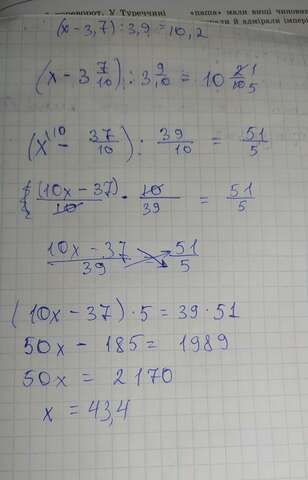 переворот. У Туреччині
"паша" мали вищі чиновн
й адмірали
(x - 3,7) : 3,9 = 10,2
(x - 3 7/10) : 3 9/10 = 10 2/10 1/5
(x^10 - 37/10) : 39/10 = 51/5
(10x - 37)/10 · 10/39 = 51/5
10x - 37/39 = 51/5
(10x - 37) · 5 = 39 · 51
50x - 185 = 1989
50x = 2170
x = 43,4